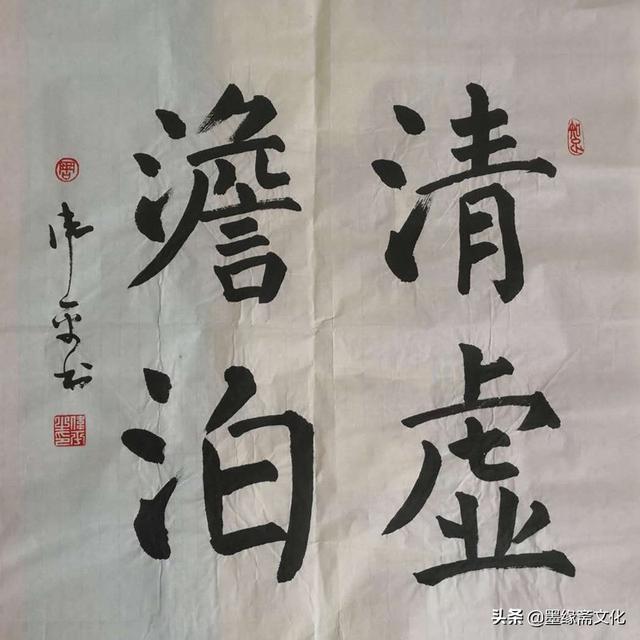 清虚
澹泊
伟平书
头条 @墨缘斋文化